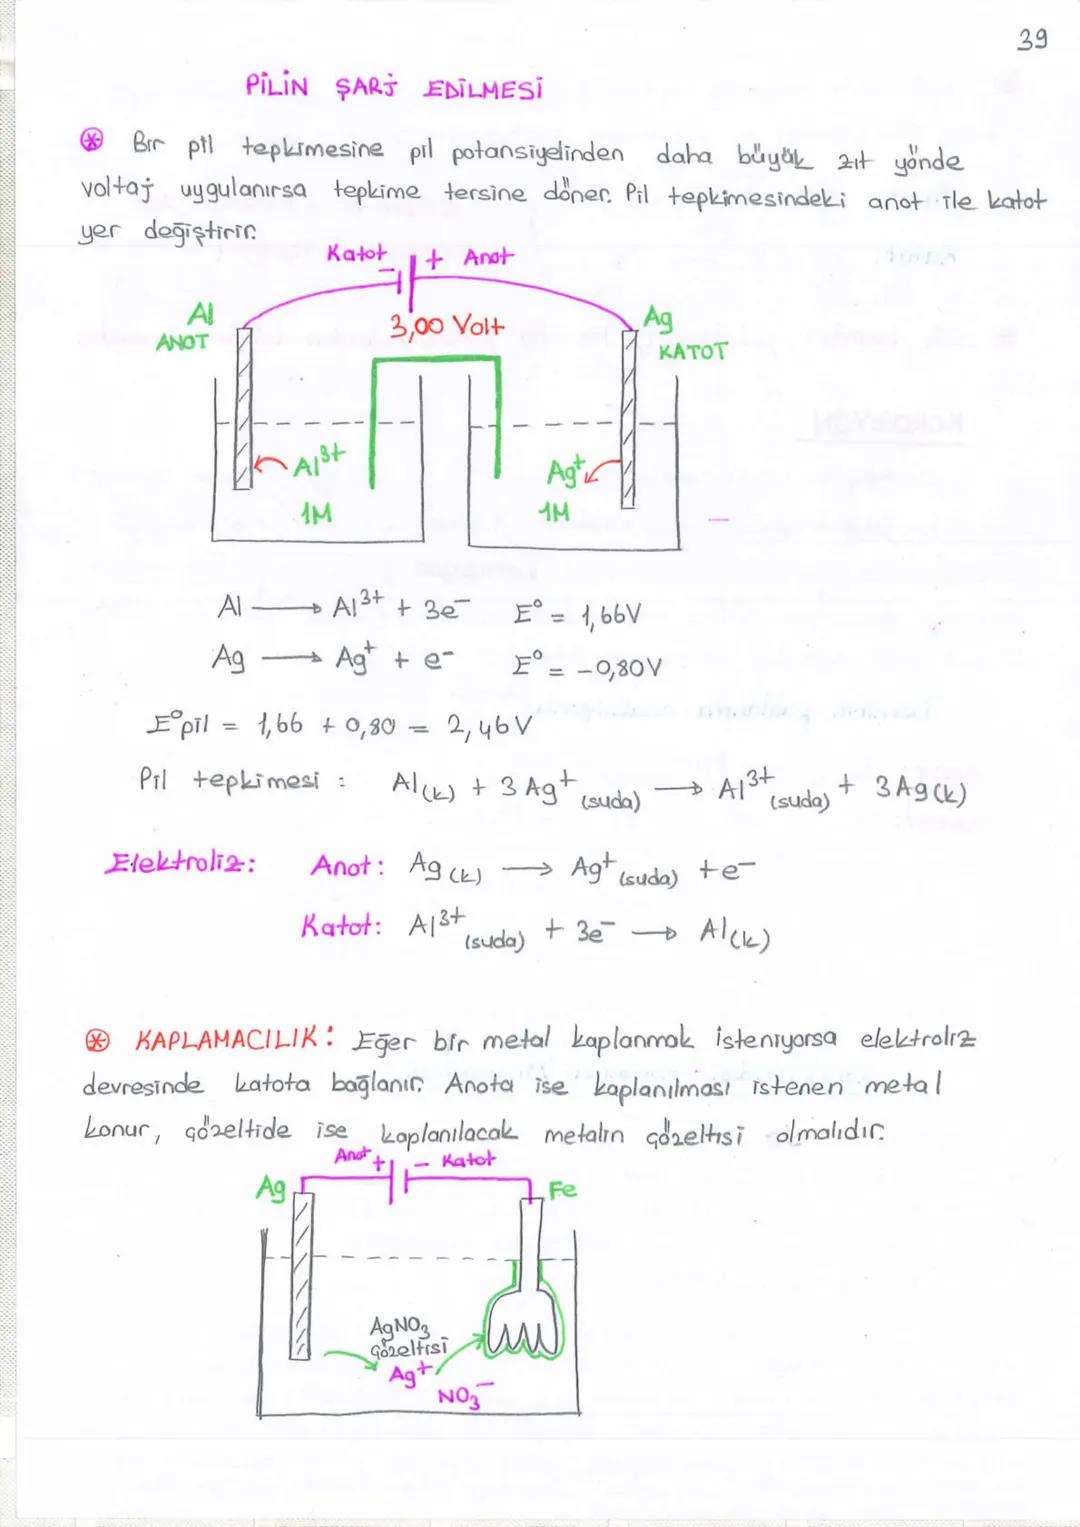 39
PİLİN ŞARJ EDİLMESİ
Bir pil tepkimesine pil potansiyelinden daha büyük zıt yönde
voltaj uygulanırsa tepkime tersine döner. Pil tepkimesindeki anot ile katot
yer değiştirir.
Katot - + Anot
Al
ANOT
3,00 Volt
Ag
KATOT
Al³⁺ Ag⁺
1M 1M
Al → Al³⁺ + 3e⁻ E° = 1,66V
Ag → Ag⁺ + e⁻ E° = -0,80V
E°pil = 1,66 + 0,80 = 2,46V
Pil tepkimesi : Al(k) + 3Ag⁺(suda) → Al³⁺(suda) + 3Ag(k)
Elektroliz: Anot: Ag(k) → Ag⁺(suda) + e⁻
Katot: Al³⁺(suda) + 3e⁻ → Al(k)
KAPLAMACILIK: Eğer bir metal kaplanmak isteniyorsa elektroliz
devresinde katota bağlanır. Anota ise kaplanılması istenen metal
konur, çözeltide ise kaplanılacak metalin çözeltisi olmalıdır.
Anot + - Katot
Ag Fe
AgNO₃
çözeltisi
Ag⁺
NO₃⁻